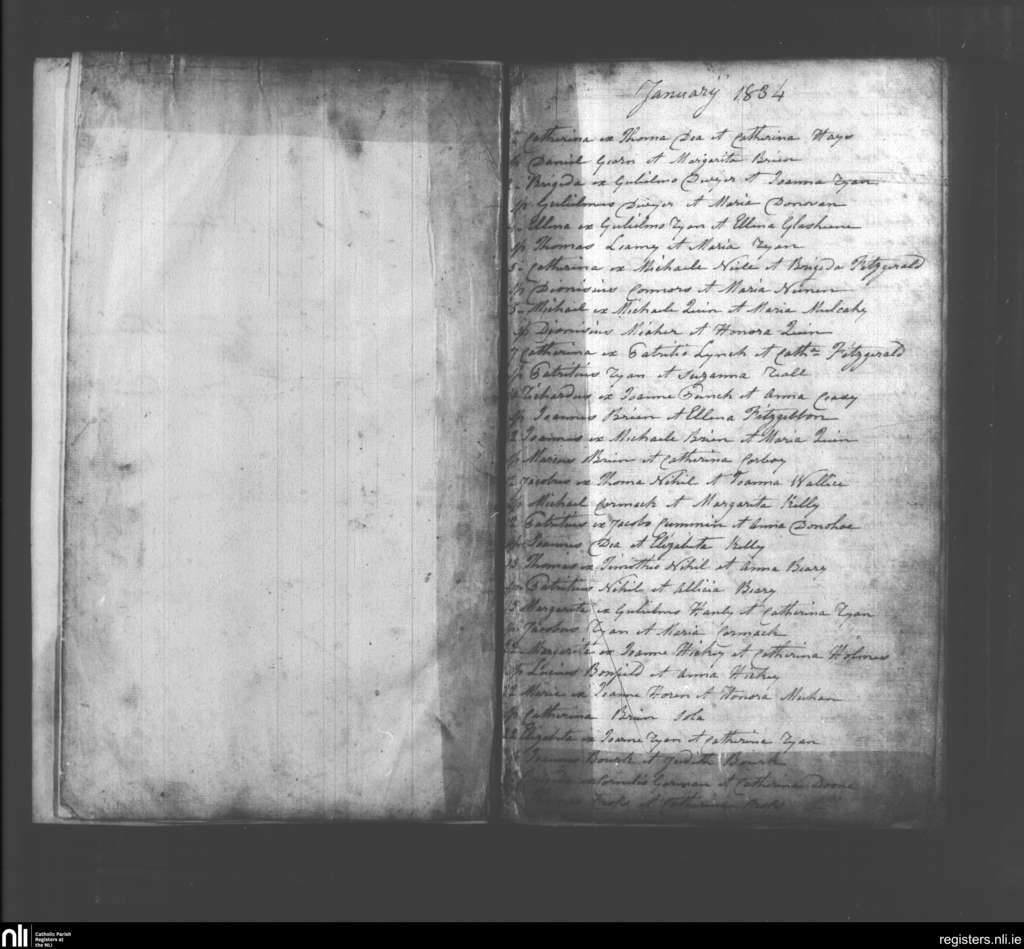 January 1834
Catherina ex Thoma Dea et Catherina Hays
Daniel Gearn et Margarita Brien
Brigida ex Gulielmo Dwyer et Joanna Ryan
Sp Gulielmus Dwyer et Maria Donovan
Ellena ex Gulielmo Ryan et Ellena Glasheene
Sp Thomas Leamy et Maria Ryan
5 Catherina ex Michaele et Brigida Fitzgerald
Sp Dionisius Connors et Maria Nunen
5 Michael ex Michaele Quin et Maria Mulcahy
Sp Dionisius Meaher et Honora Quin
7 Catherina ex Patritio Lynch et Cath:n Fitzgerald
Sp Patritius Ryan et Suzanna
Richardus ex Joanne et Anna
Sp Joannes Brien et Ellena Fitzgibbon
2 Joannes ex Michaele Brien et Maria Quin
Brien et Catherina Corboy
2 Jacobus ex Thoma Nihil et Joanna Wallice
Sp Michael Cormack et Margarita Kelly
2 Patritius ex Jacobo Cummin et Anna Donohoe
Sp Joannes Dea et Elizabeta Kelly
13 Thomas ex Timothio Nihil et Anna Beary
Sp Patritius Nihil et Allicia Beary
Margarita ex Gulielmo Hanly et Catherina Ryan
Jacobus Ryan et Maria Cormack
Margarita ex Joanne Hickey et Catherina Holmes
Sp Lucius Bonfield et Anna Hickey
22 Maria ex Joanne Horen et Honora Mechan
Sp Catherina Brien Sola
22 Elizabeta ex Joanne Ryan et Catherina Ryan
Joannes Bourk et Judith Bourk
ex Cornelio Gorman et Catherina Doone
et Catherina
nli
Catholic Parish
Registers at
the NLI
registers.nli.ie